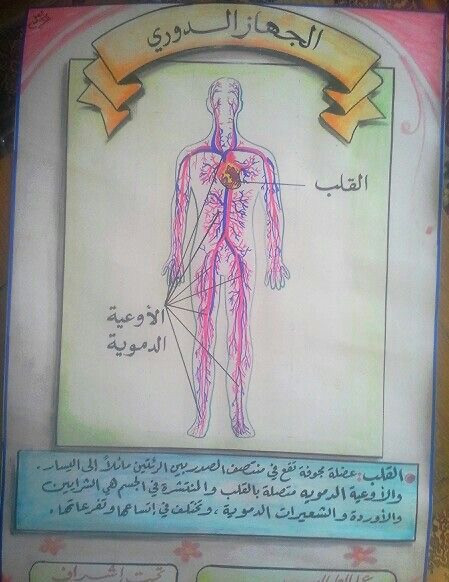 الجهاز الدوري
القلب
الأوعية
الدموية
القلب: عضلة مجوفة تقع في منتصف الصدر بين الرئتين مائلاً إلى اليسار.
والأوعية الدموية متصلة بالقلب والمنتشرة في الجسم هي الشرايين
والأوردة والشعيرات الدموية، وتختلف في إتساعها وتفرعاتها.
تحت إشراف